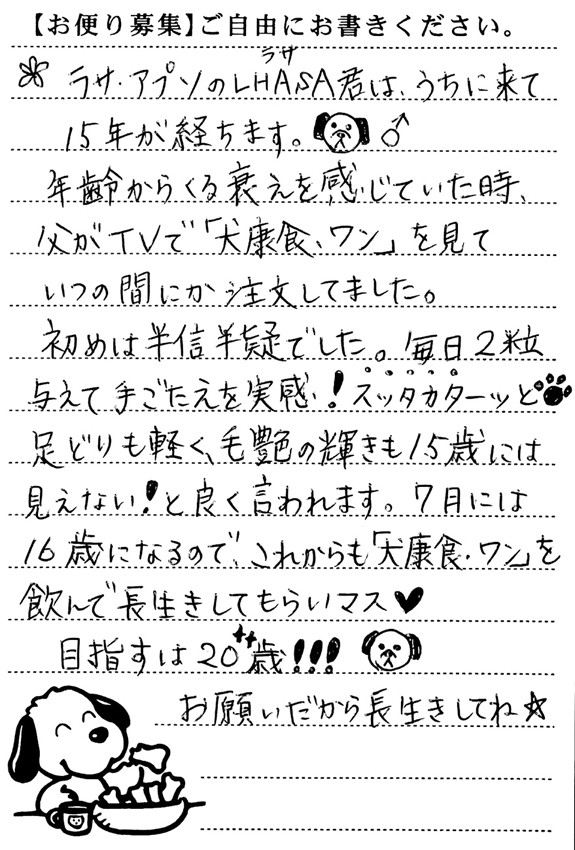 【お便り募集】ご自由にお書きください。
ラサ
ラサ・アプソのLHASA君は、うちに来て
15年が経ちます。♂
年齢からくる衰えを感じていた時、
父がTVで「犬康食、ワン」を見て
いつの間にか注文してました。
初めは半信半疑でした。毎日2粒
与えて手ごたえを実感!スッタカターッと
足どりも軽く、毛艶の輝きも15歳には
見えない!と良く言われます。7月には
16歳になるので、これからも「犬康食・ワン」を
飲んで長生きしてもらいマス♥
目指すは20才歳!!!
お願いだから長生きしてね☆